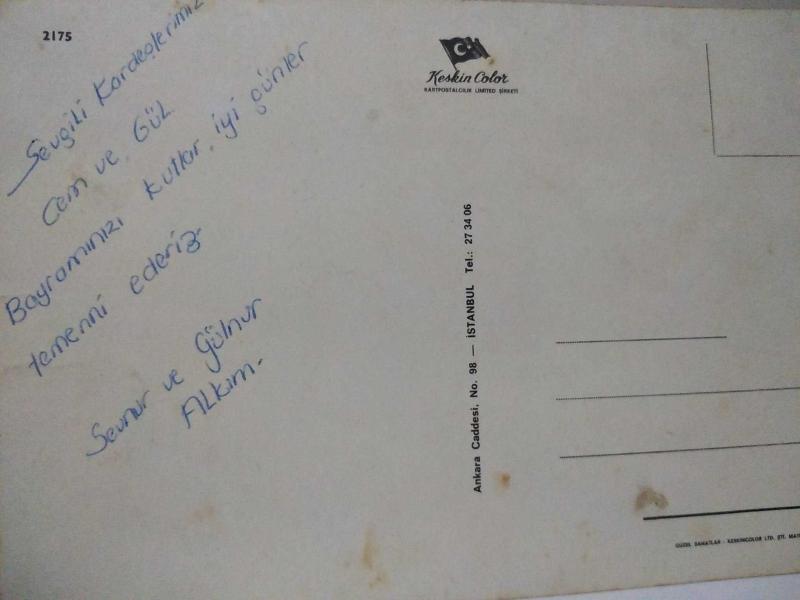 2175
Sevgili Kardeşlerimiz
Cem ve Gül
Bayramınızı kutlar, iyi günler
temenni ederiz.
Sevnur ve Gülnur
ALKım.
Keskin Color
KARTPOSTALCILIK LIMITED ŞİRKETİ
Ankara Caddesi, No. 98 — İSTANBUL Tel.: 27 34 06
GÜZEL SANATLAR - KESKİNCOLOR LTD. ŞTİ. MAT